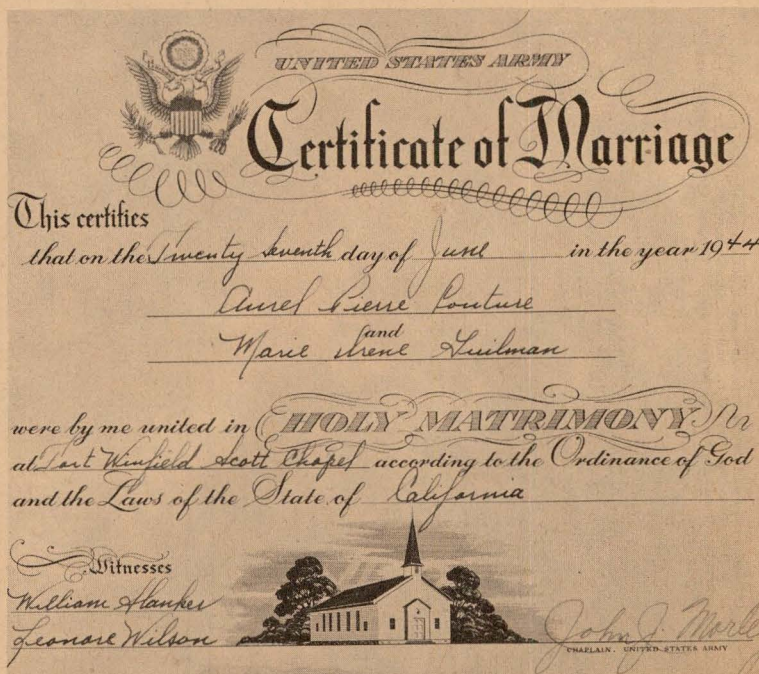 UNITED STATES ARMY
Certificate of Marriage
This certifies
that on the Twenty seventh day of June in the year 1944
Aurel Pierre Couture
and
Marie Irene Guilman
were by me united in HOLY MATRIMONY
at Fort Winfield Scott Chapel according to the Ordinance of God
and the Laws of the State of California
Witnesses
William
Leonore Wilson
John J.
CHAPLAIN, UNITED STATES ARMY